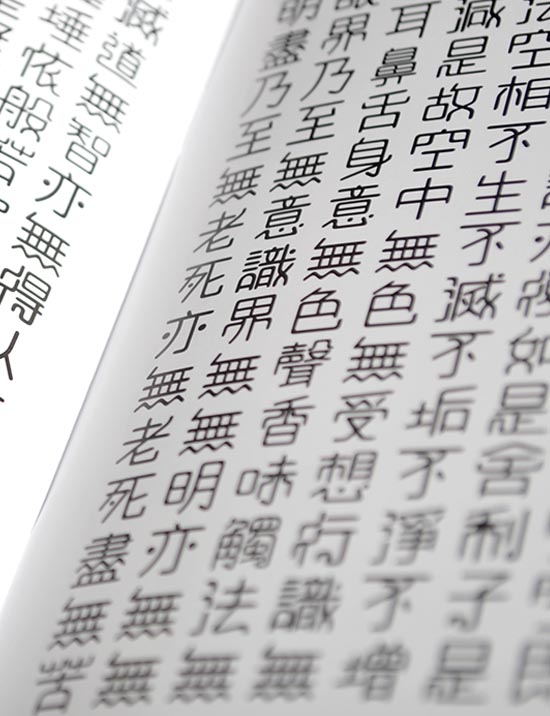 復如是舍利子是
法空相不生不滅不垢不淨不增
減是故空中無色無受想行識無
耳鼻舌身意無色聲香味觸法無
眼界乃至無意識界無無明亦無無
明盡乃至無老死亦無老死盡無苦
滅道無智亦無得以
埵依般若